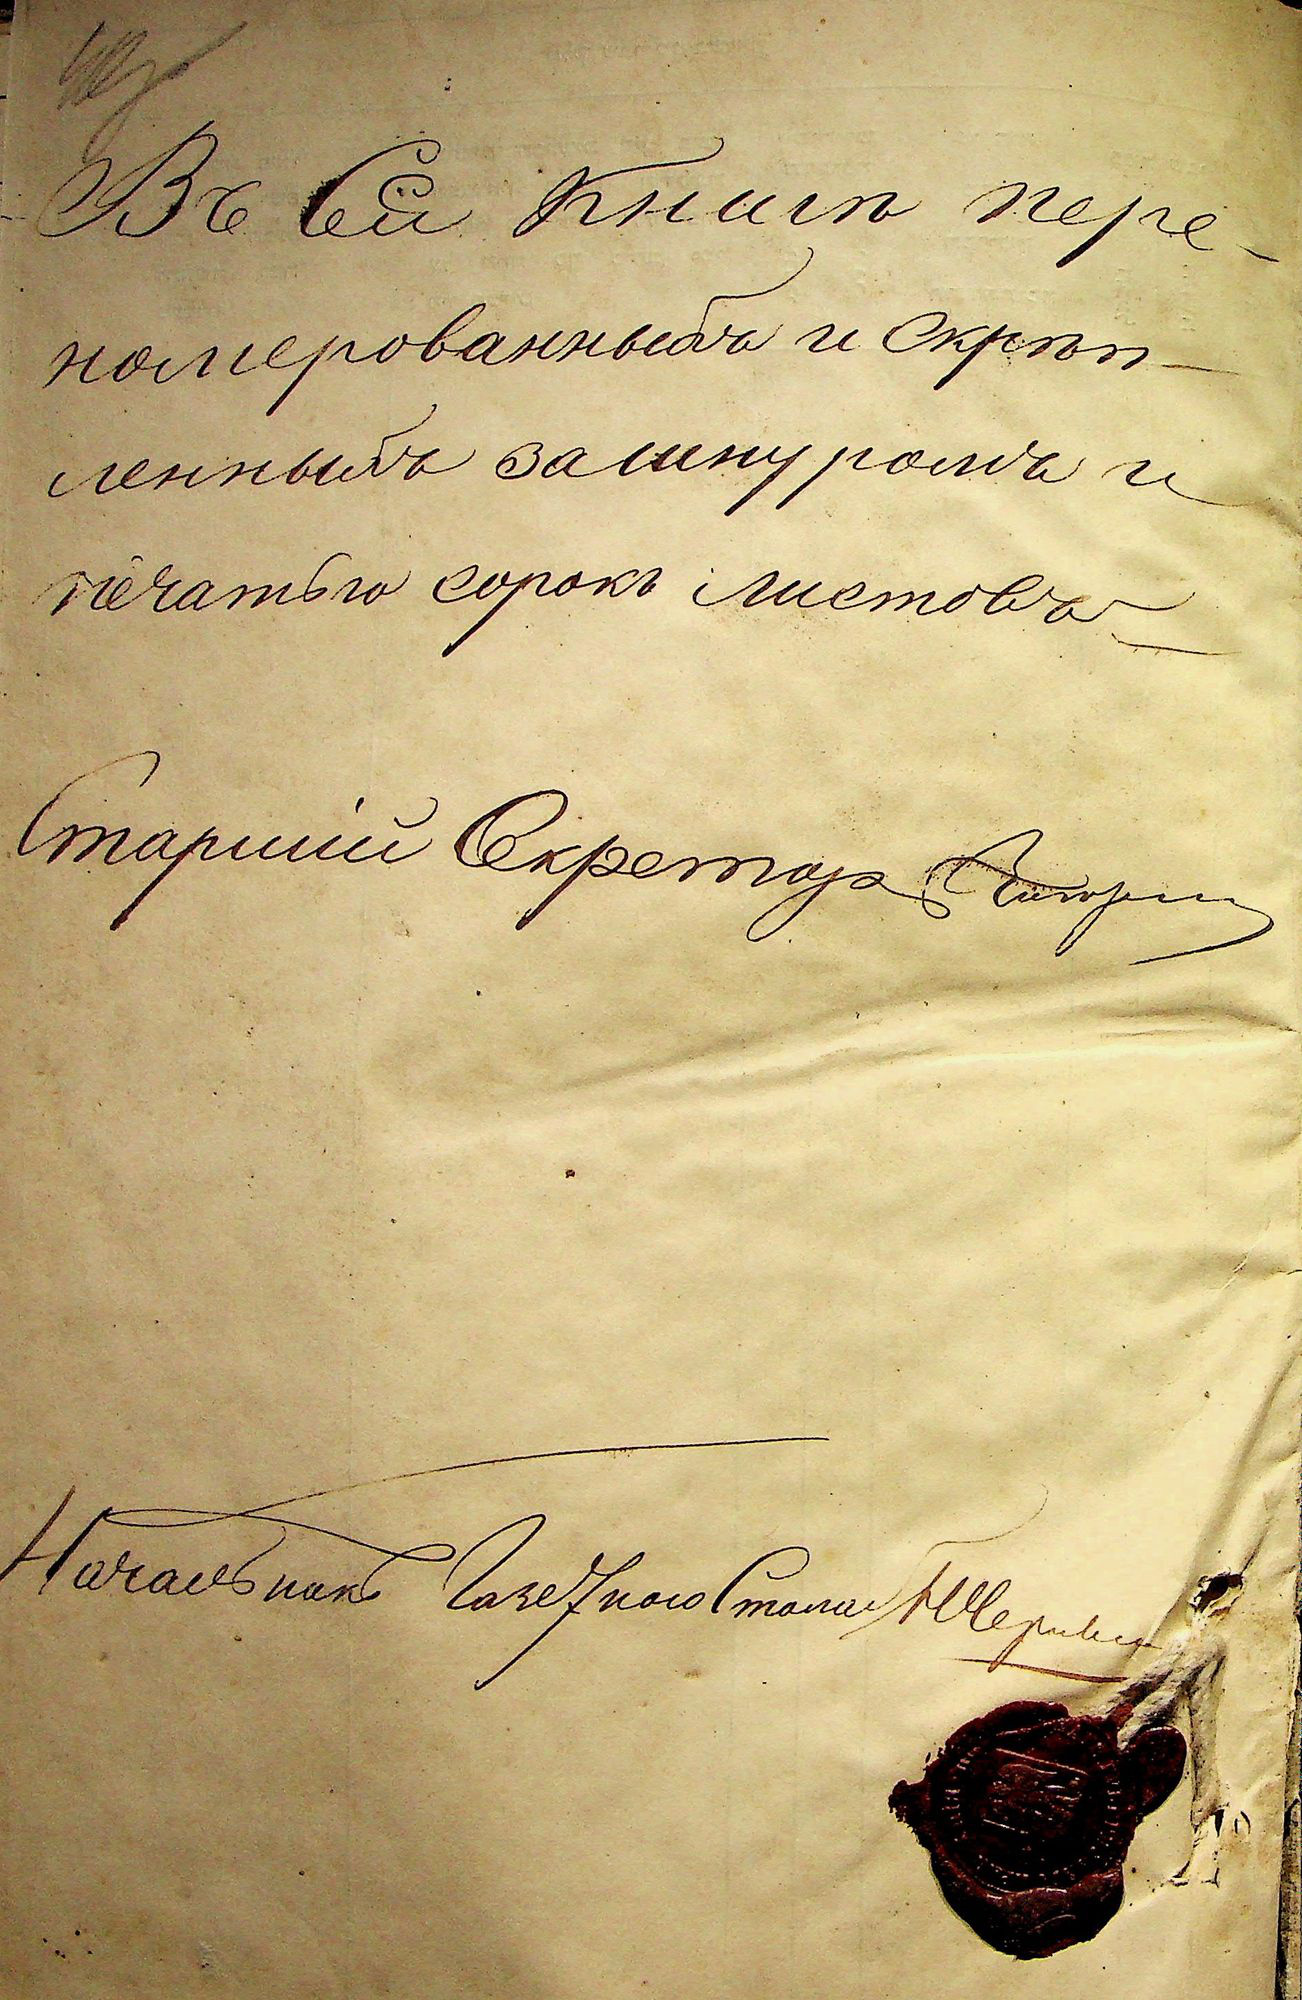 Въ Сей Книгѣ пере-
номерованныхъ и скрѣп-
ленныхъ за шнуромъ и
печатью сорокъ листовъ
Старшій Секретарь
Начальникъ Газетного Стола